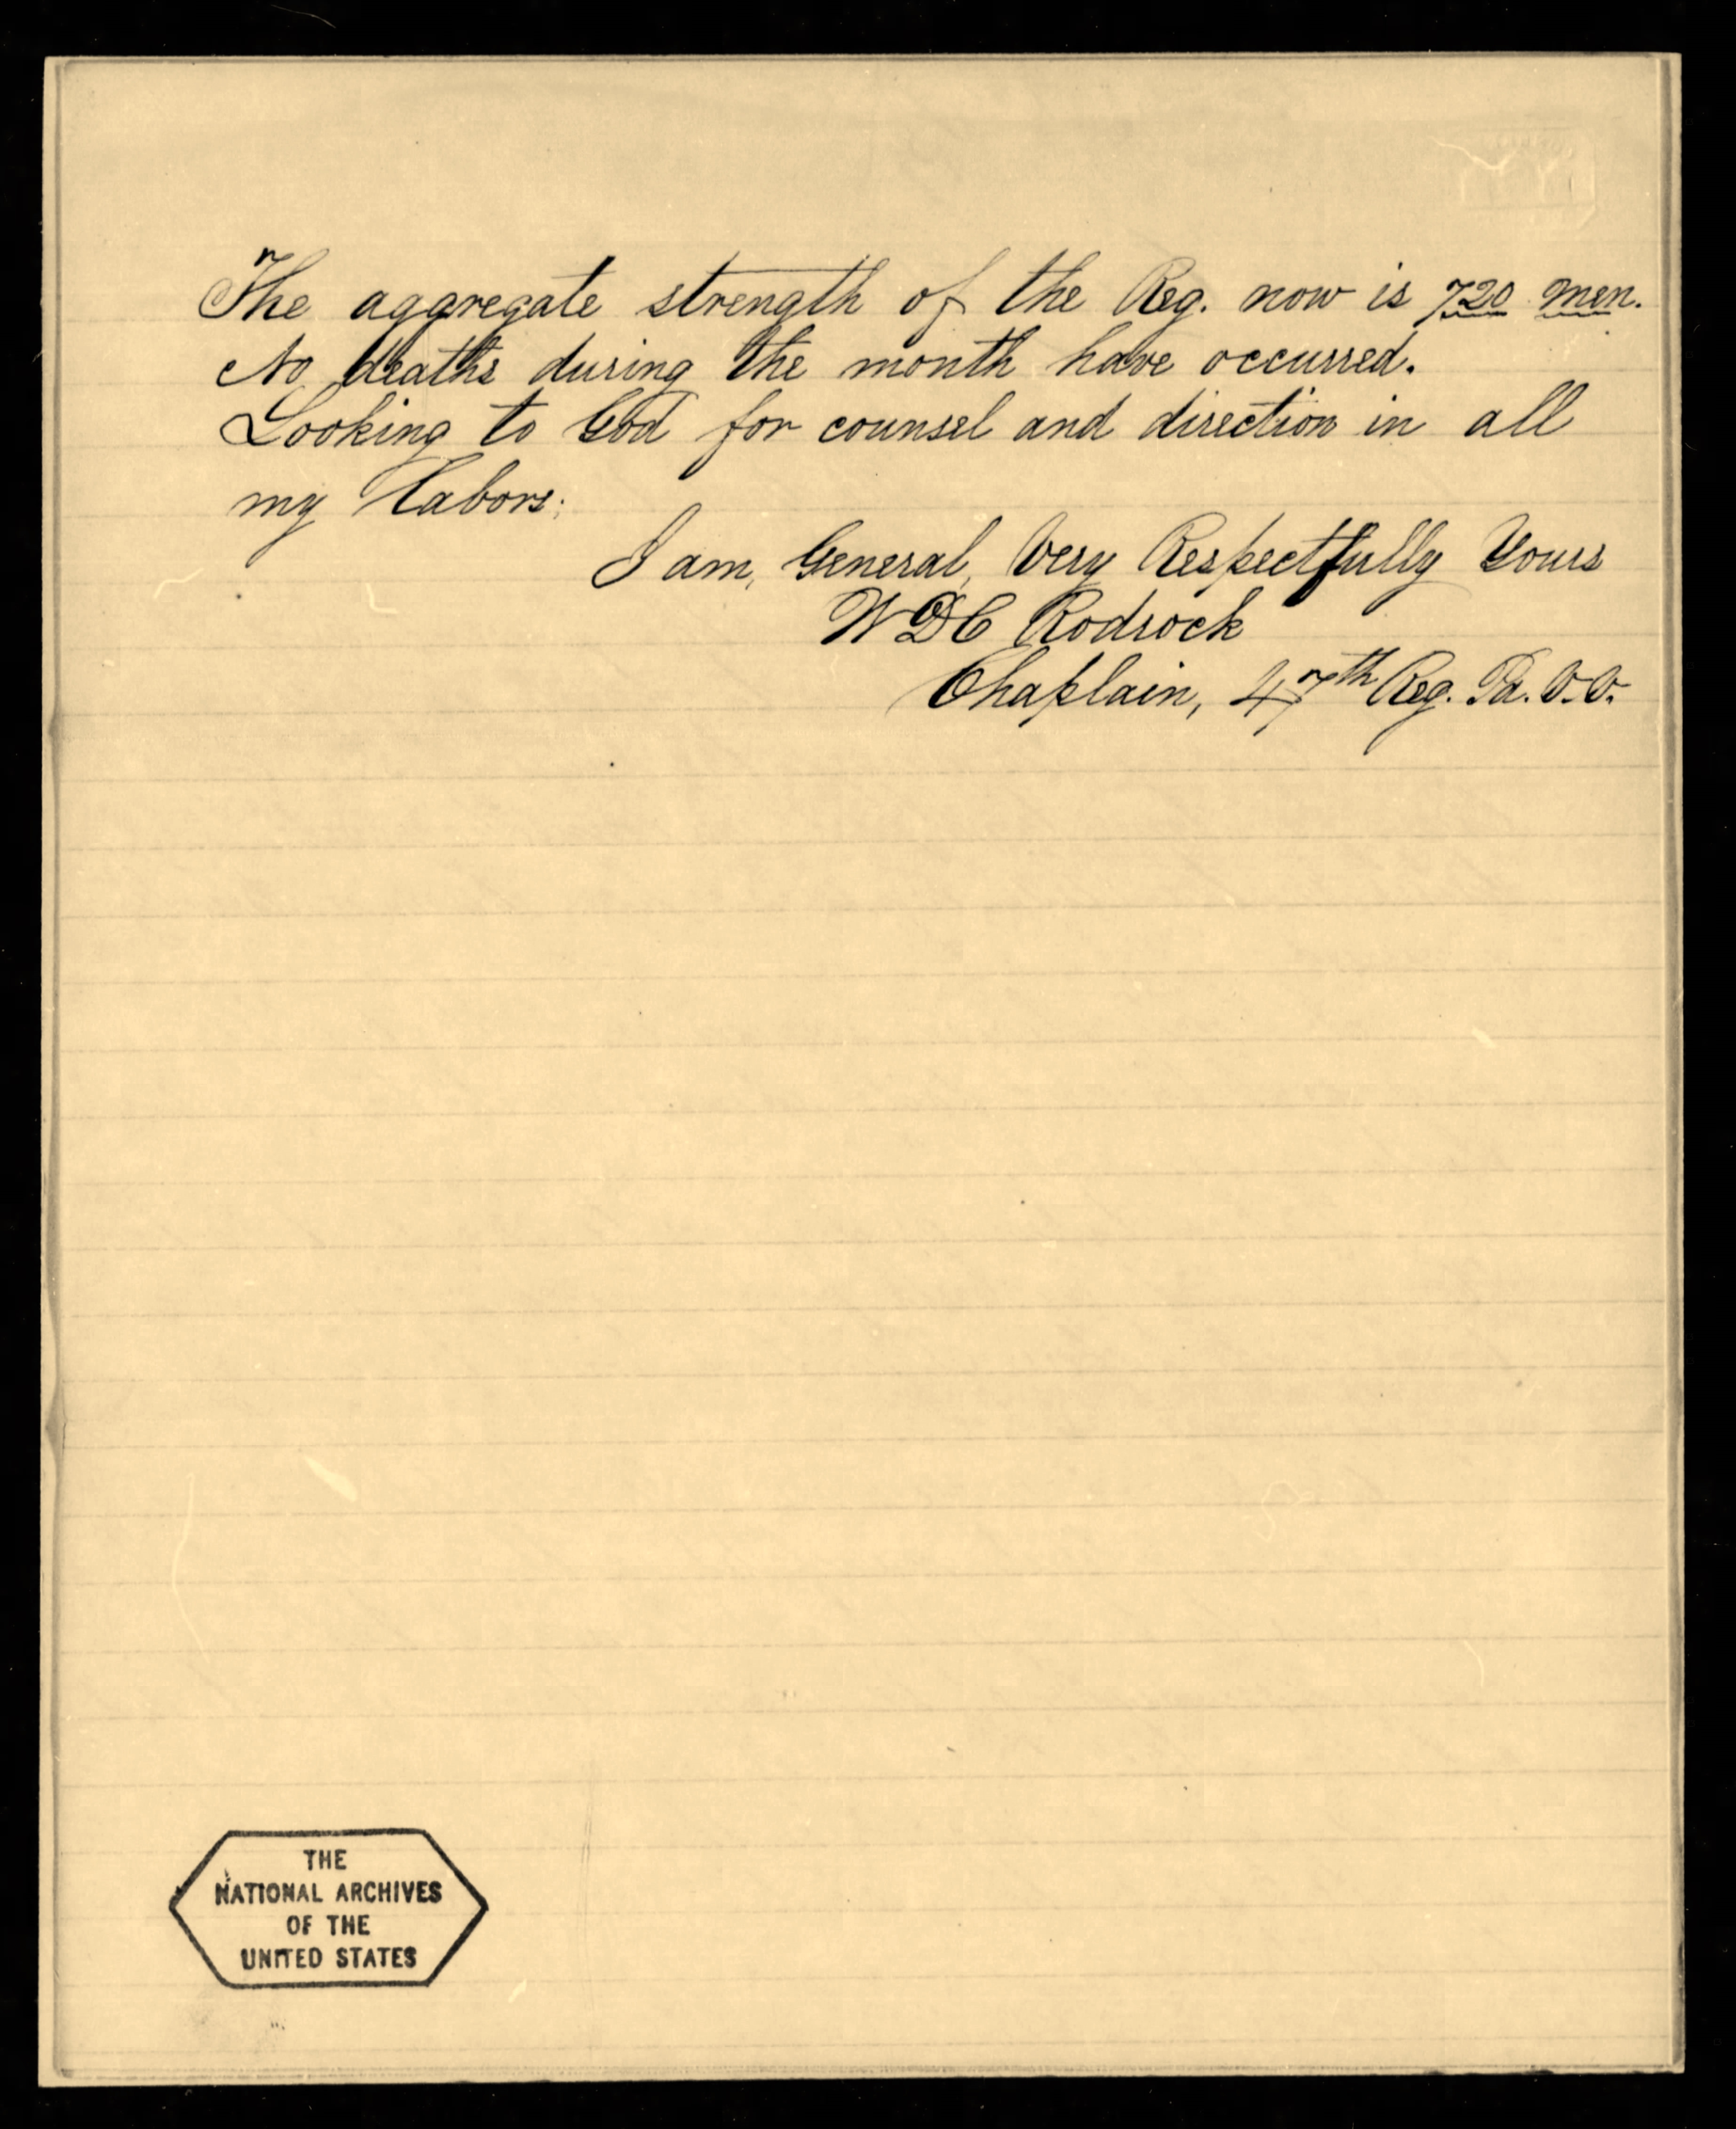 The aggregate strength of the Reg. now is 720 men.
No deaths during the month have occurred.
Looking to God for counsel and direction in all
my labors;
I am, General, Very Respectfully Yours
W D C Rodrock
Chaplain, 47th Reg. Pa. V. V.
THE
NATIONAL ARCHIVES
OF THE
UNITED STATES